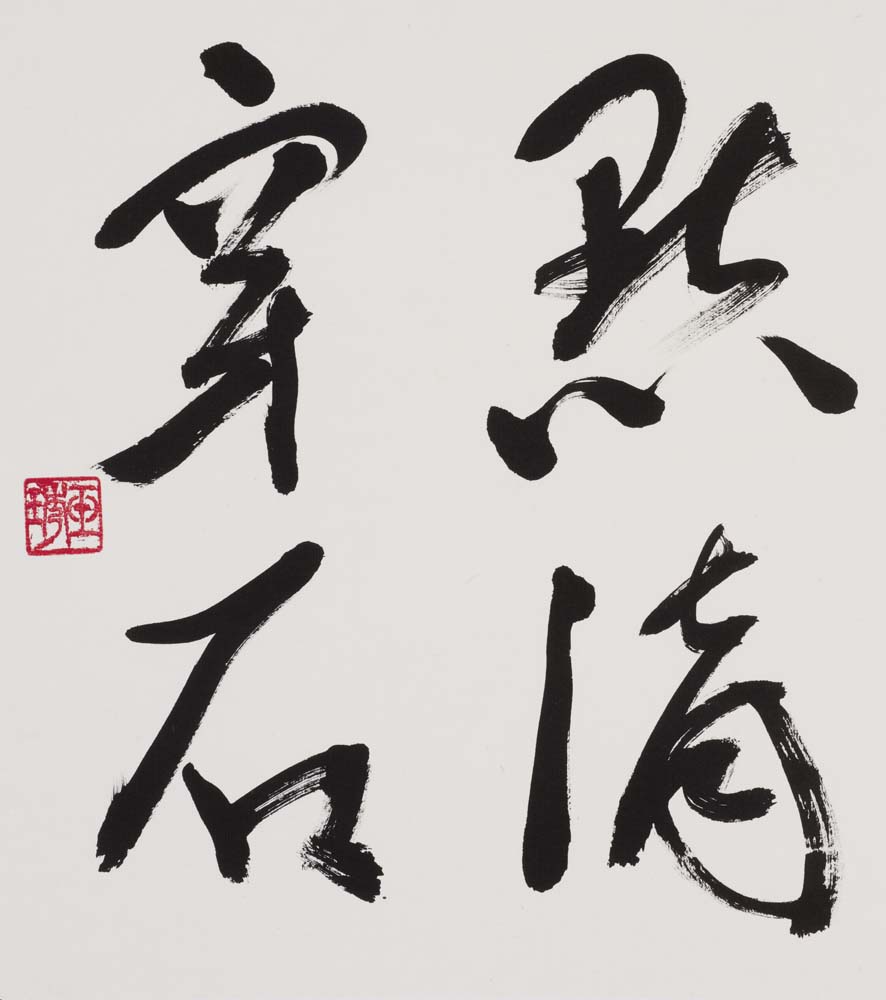 點滴
穿石